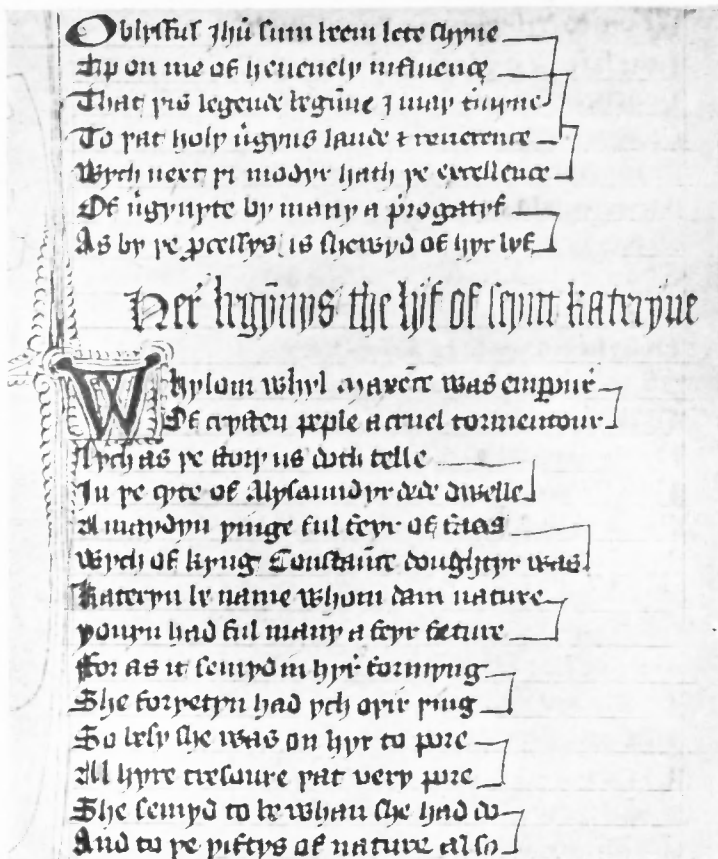 O blysful ihū sum bem lete shyne
Up on me of heuenely influence
That þis legende begūne I may tmyne
To þat holy ũgyns laude & reuerence
Wych next þi modyr hath þe excellence
Of ũgynyte by many a p̃rogatyf
As by þe ꝓcessys is shewyd of hyr lyf
Her begȳnys the lyf of seynt kateryne
Whylom whyl Maxēce was empour
Of crysten peple a cruel tormentour
Rych as þe story us doth telle
In þe cyte of Alysaundyr dede dwelle
A maydyn yinge ful feyr of faas
Wych of kyng Constaūce doughtyr was
Kateryn be name whom dam nature
Youyn had ful many a feyr feture
For as it semyd in hyr formyng
She foryetyn had ych oþir þing
So besy she was on hyr to pore
All hyre tresoure þat very pore
She semyd to be whan she had do
And to þe yiftys of nature also